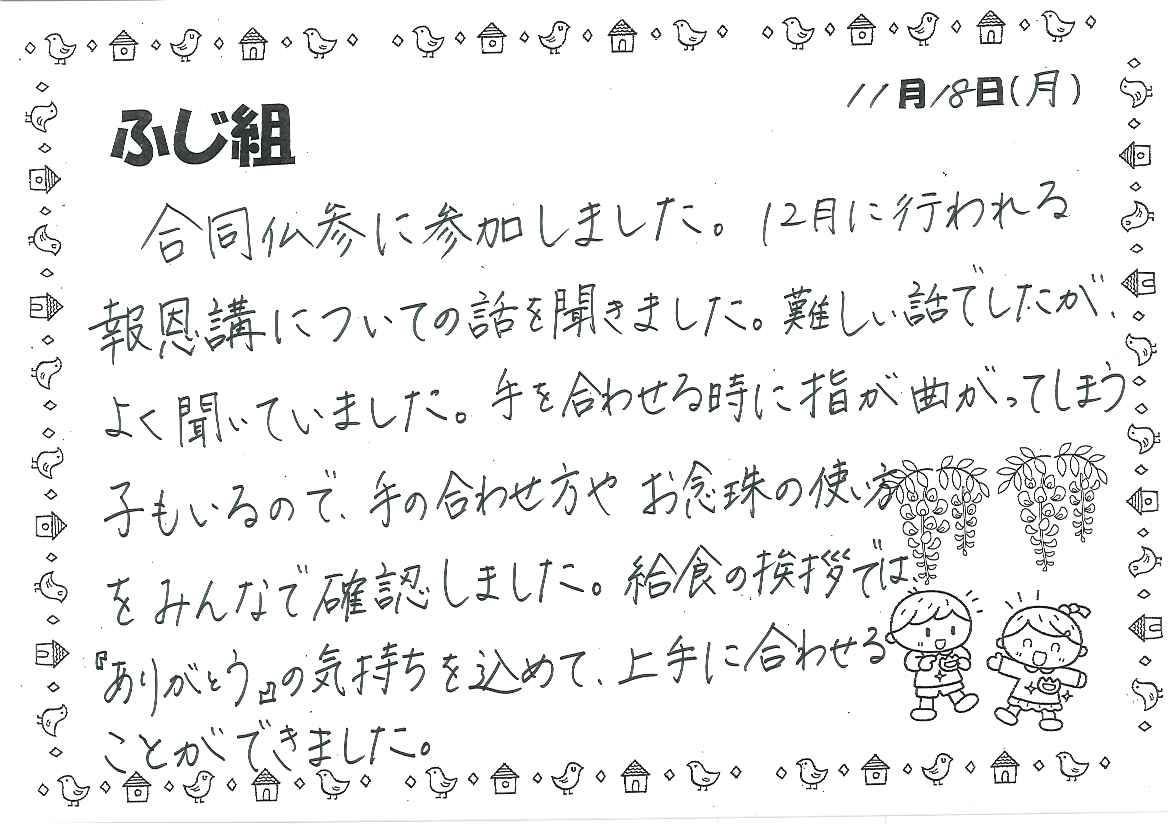 11月18日(月)
ふじ組
合同仏参に参加しました。12月に行われる
報恩講についての話を聞きました。難しい話でしたが、
よく聞いていました。手を合わせる時に指が曲がってしまう
子もいるので、手の合わせ方や お念珠の使い方
をみんなで確認しました。給食の挨拶では、
『ありがとう』の気持ちを込めて、上手に合わせる
ことができました。